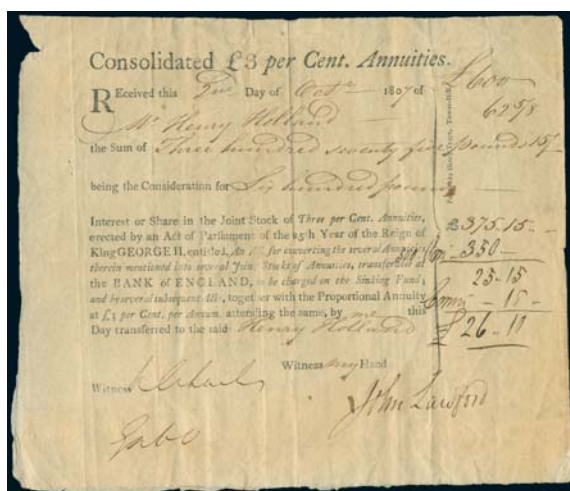 Consolidated £3 per Cent. Annuities.
REceived this Day of Octr 1807 of
Mr Henry Holland
the Sum of Three hundred seventy five pounds 15/
being the Consideration for Six hundred pounds
Interest or Share in the Joint Stock of Three per Cent. Annuities,
erected by an Act of Parliament of the 25th Year of the Reign of
King GEORGE II, entitled, An Act for converting the several Annuities
therein mentioned into several Joint Stocks of Annuities, transferable at
the BANK of ENGLAND, to be charged on the Sinking Fund;
and by several subsequent Acts, together with the Proportional Annuity
at £3 per Cent. per Annum. attending the same, by me this
Day transferred to the said Henry Holland
Witness my Hand
Witness
John Lawford
£600
62 5/8
£375.15.-
350
25.15
15
£26.10